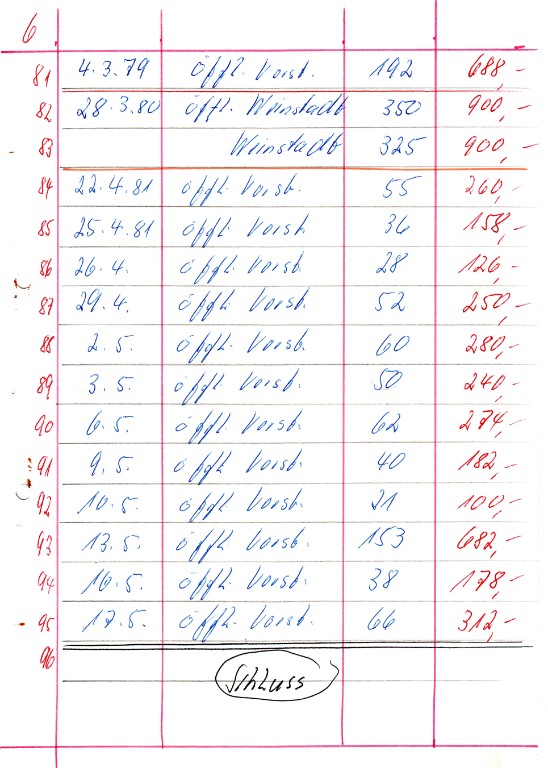 6
81 4.3.79 öffl. Vorst. 192 688,-
82 28.3.80 öffl. Weinstadt 350 900,-
83 Weinstadt 325 900,-
84 22.4.81 öffl. Vorst. 55 260,-
85 25.4.81 öffl. Vorst. 36 158,-
86 26.4. öffl. Vorst. 28 126,-
87 29.4. öffl. Vorst. 52 250,-
88 2.5. öffl. Vorst. 60 280,-
89 3.5. öffl. Vorst. 50 240,-
90 6.5. öffl. Vorst. 62 274,-
91 9.5. öffl. Vorst. 40 182,-
92 10.5. öffl. Vorst. 21 100,-
93 13.5. öffl. Vorst. 153 682,-
94 16.5. öffl. Vorst. 38 178,-
95 17.5. öffl. Vorst. 66 312,-
96
Schluss